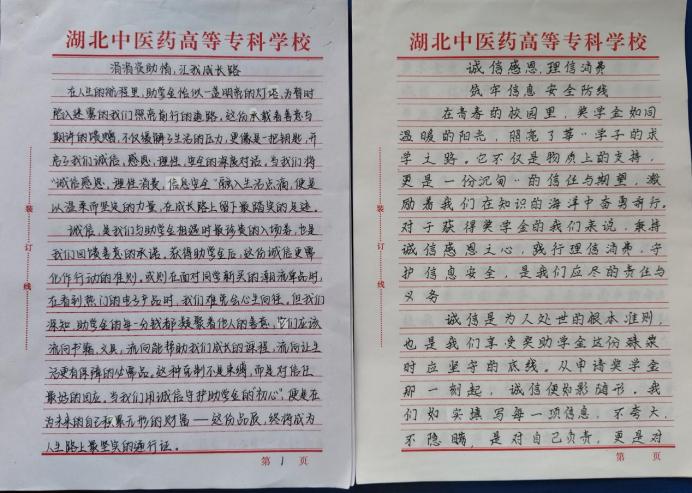 湖北中医药高等专科学校
涓涓资助情,汇我成长路
在人生的旅程里,助学金恰似一盏明亮的灯塔,为暂时
陷入迷雾的我们照亮前行的道路。这份承载着善意与
期许的馈赠,不仅缓解了生活的压力,更像是一把钥匙,开
启了我们诚信、感恩、理性、安全的深度对话,当我们将
“诚信感恩,理性消费,信息安全”融入生活点滴,便是
以温柔而坚定的力量,在成长路上留下最踏实的足迹。
诚信,是我们与助学金相遇时最珍贵的入场券,也是
我们回馈善意的承诺。获得助学金后,这份诚信更需
化作行动的准则。或则在面对同学新买的潮流单品时,
在看到热门的电子产品时,我们难免会心生向往,但我们
深知,助学金的每一分钱都凝聚着他人的善意,它们应该
流向书籍、文具,流向能帮助我们成长的课程,流向让生
活更有保障的必需品。这种克制不是束缚,而是对信任
最好的回应。当我们用诚信守护助学金的“初心”,便是在
为未来的自己积累无形的财富——这份品质,终将成为
人生路上最坚实的通行证。
装订线
第 1 页
湖北中医药高等专科学校
诚信感恩,理信消费
筑牢信息安全防线
在青春的校园里,奖学金如同
温暖的阳光,照亮了莘"学子的求
学之路。它不仅是物质上的支持,
更是一份沉甸"的信任与期望,激
励着我们在知识的海洋中奋勇前行。
对于获得奖学金的我们来说,秉持
诚信感恩之心,践行理信消费,守
护信息安全,是我们应尽的责任与
义务
诚信是为人处世的根本准则,
也是我们享受奖助学金这份殊荣
时应坚守的底线。从申请奖学金
那一刻起,诚信便如影随形。我
们如实填写每一项信息,不夸大,
不隐瞒,是对自己负责,更是对
装订线
第 页